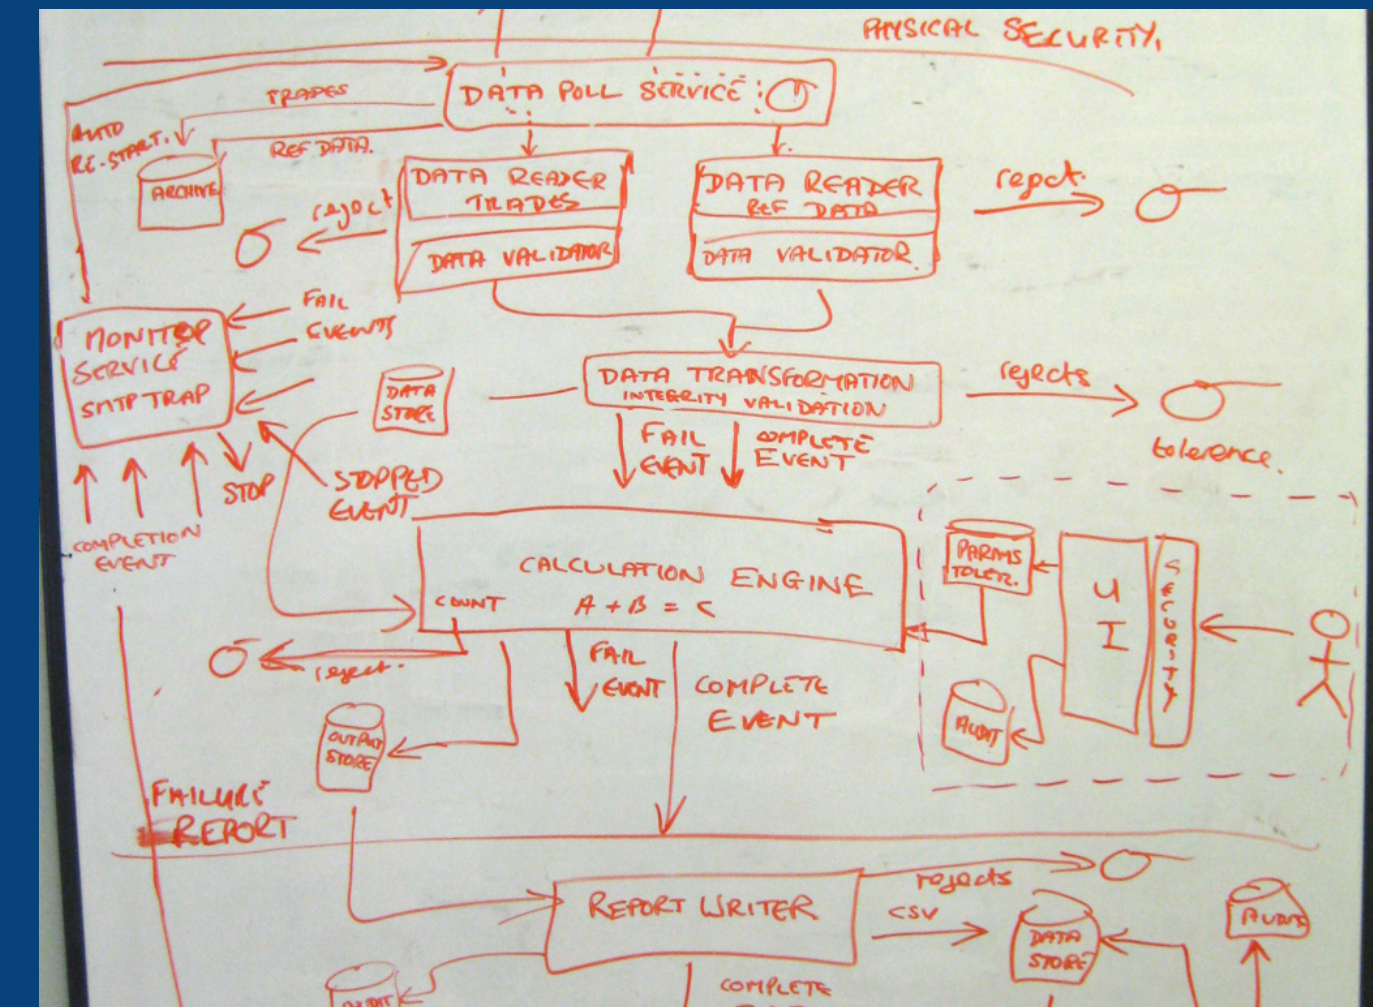 PHYSICAL SECURITY.
DATA POLL SERVICE
TRADES
AUTO
RE-START.
REF DATA.
ARCHIVE
DATA READER
TRADES
DATA VALIDATOR
DATA READER
REF DATA
DATA VALIDATOR.
reject
reject.
FAIL
EVENTS
MONITOR
SERVICE
SMTP TRAP
DATA
STORE
DATA TRANSFORMATION
INTEGRITY VALIDATION
rejects
tolerence.
FAIL
EVENT
COMPLETE
EVENT
STOP
STOPPED
EVENT
COMPLETION
EVENT
CALCULATION ENGINE
COUNT
A + B = C
PARAMS
TOLER.
UI
SECURITY
AUDIT
reject.
FAIL
EVENT
COMPLETE
EVENT
OUTPUT
STORE
FAILURE
REPORT
REPORT WRITER
rejects
CSV
DATA
STORE
AUDIT
AUDIT
COMPLETE